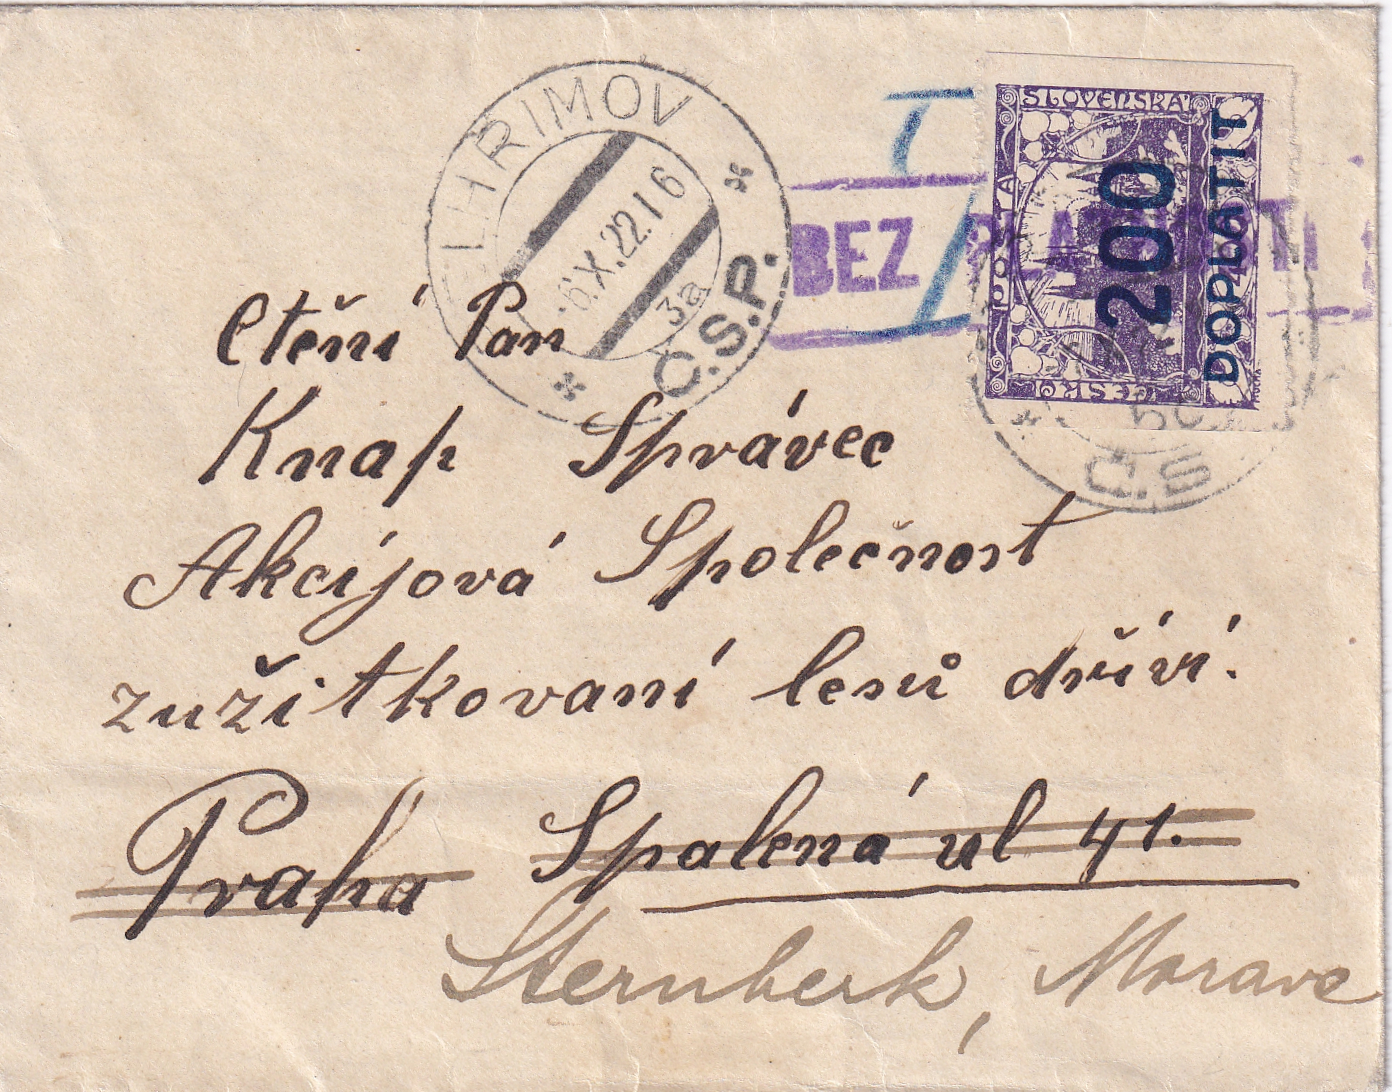 LHŘIMOV
6.X.22.I6
3a
Č.S.P.
T
BEZ PLATNOSTI
POŠTA
SLOVENSKÁ
ČESKO
200
DOPLATIT
Č.S
Ctění Pan
Knap Správec
Akcijová Společnost
zužitkovaní lesů dříví.
Praha Spalená ul 41.
Sternberk, Morave